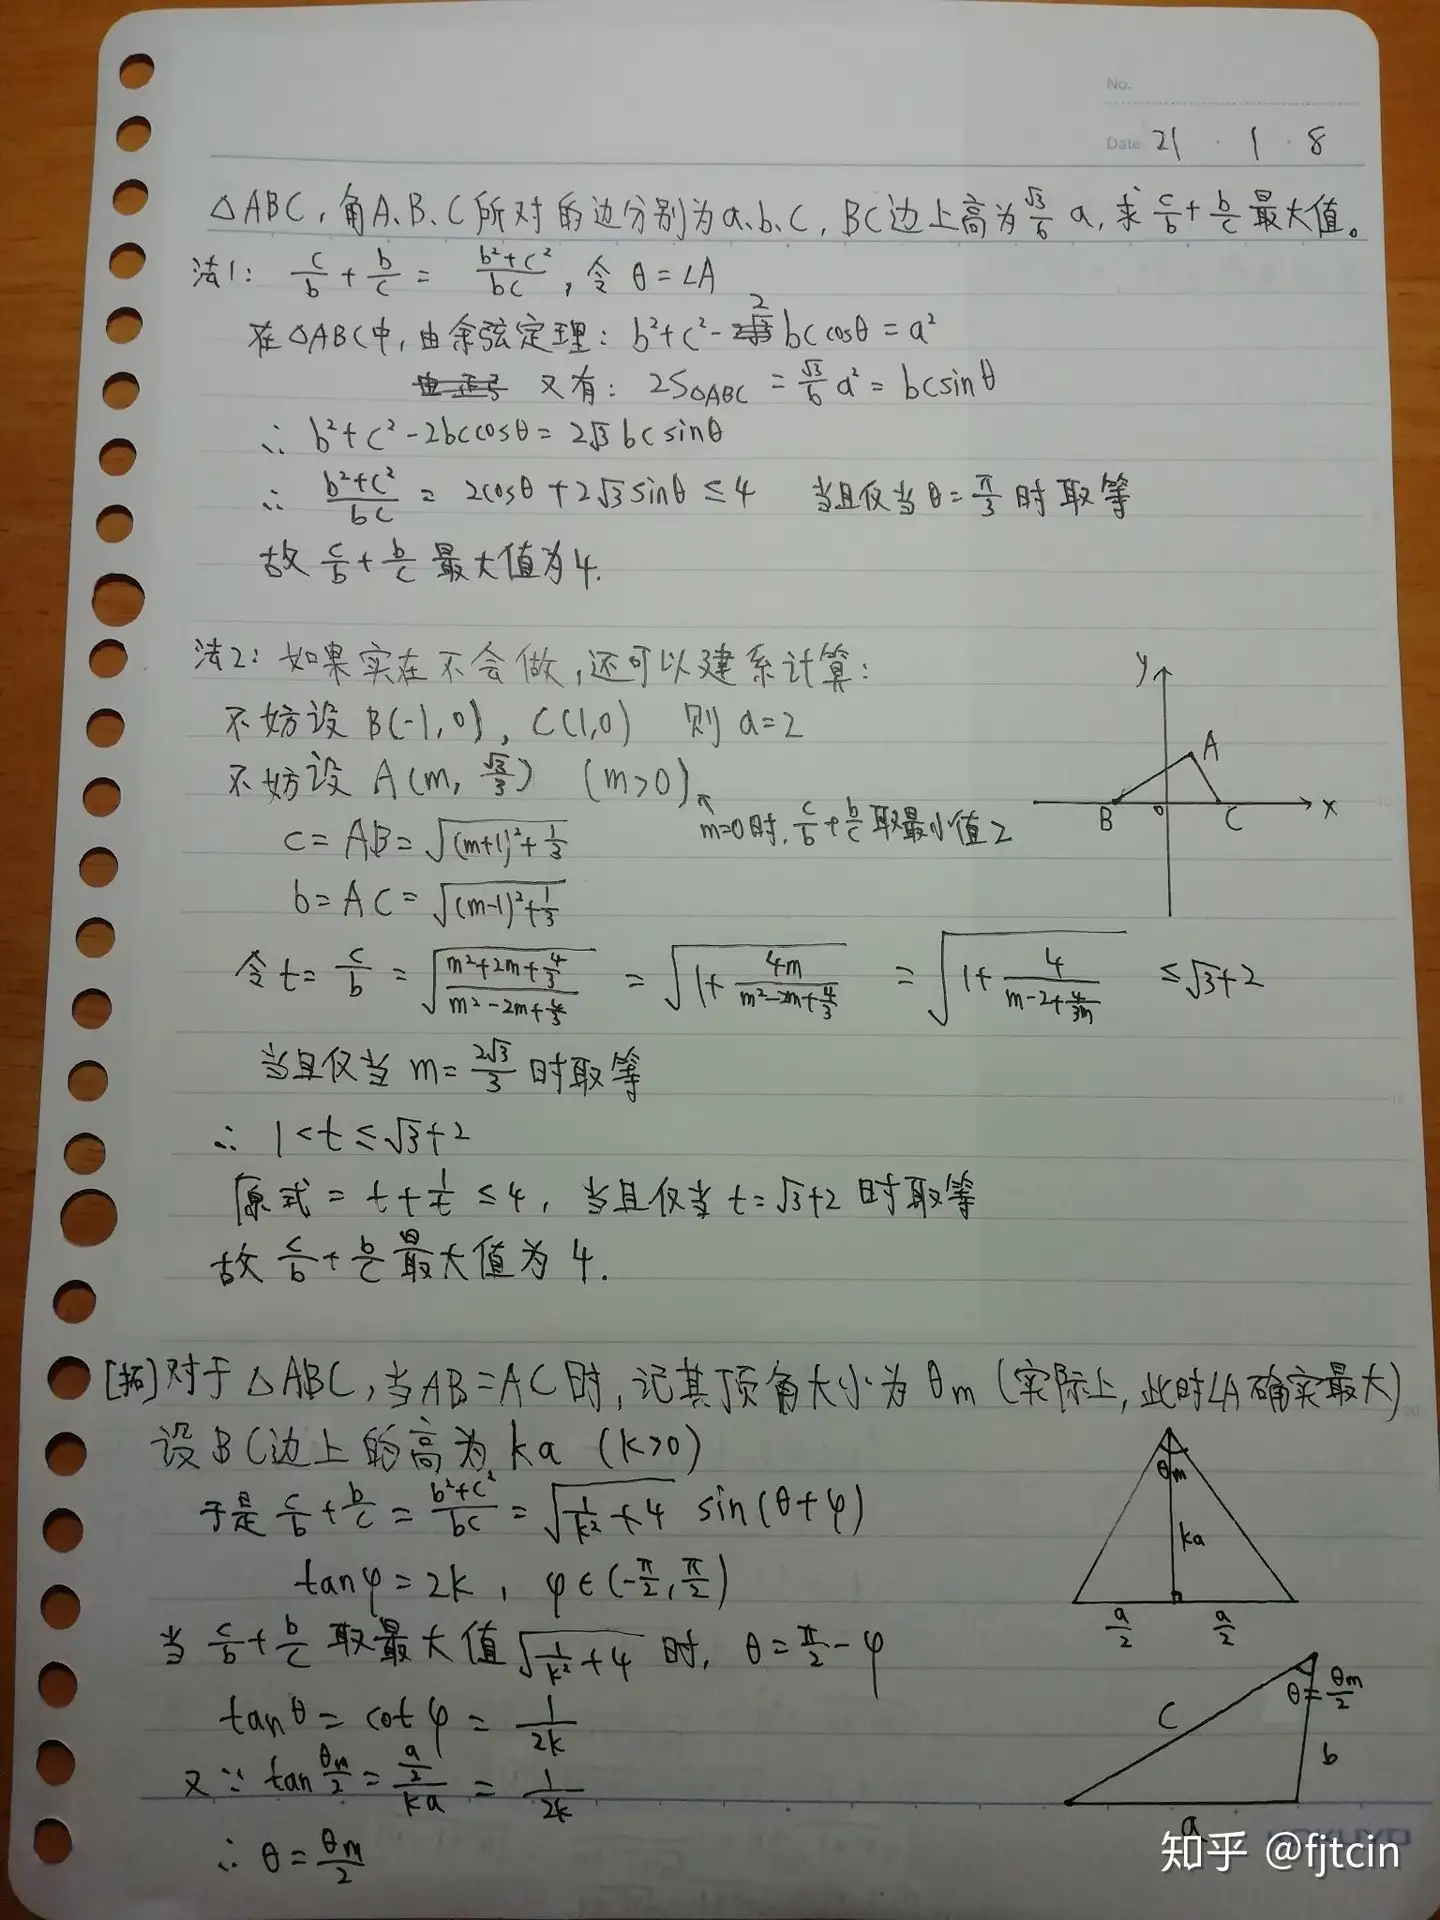 No.
Date 21 · 1 · 8
△ABC，角A、B、C所对的边分别为a、b、c，BC边上高为√3/6 a，求c/b+b/c最大值。
法1： c/b+b/c = (b²+c²)/bc，令θ=∠A
在△ABC中，由余弦定理：b²+c²-2bccosθ=a²
又有：2S△ABC=√3/6 a²=bcsinθ
∴ b²+c²-2bccosθ=2√3bcsinθ
∴ (b²+c²)/bc = 2cosθ+2√3sinθ≤4 当且仅当θ=π/3时取等
故 c/b+b/c 最大值为4.
法2：如果实在不会做，还可以建系计算：
不妨设 B(-1,0)，C(1,0) 则 a=2
不妨设 A(m, √3/3) (m>0)
m=0时，c/b+b/c取最小值2
c=AB=√((m+1)²+1/3)
b=AC=√((m-1)²+1/3)
y
A
B O C x
令t=c/b=√((m²+2m+4/3)/(m²-2m+4/3)) = √(1+4m/(m²-2m+4/3)) = √(1+4/(m-2+4/3m)) ≤√3+2
当且仅当 m=2√3/3 时取等
∴ 1<t≤√3+2
原式=t+1/t≤4，当且仅当t=√3+2时取等
故 c/b+b/c 最大值为4.
[拓]对于△ABC，当AB=AC时，记其顶角大小为θm（实际上，此时∠A确实最大）
设BC边上的高为ka (k>0)
于是 c/b+b/c=(b²+c²)/bc=√(1/k²+4) sin(θ+φ)
tanφ=2k，φ∈(-π/2,π/2)
当 c/b+b/c 取最大值√(1/k²+4)时，θ=π/2-φ
tanθ=cotφ=1/2k
又∵ tan θm/2=(a/2)/ka=1/2k
∴ θ=θm/2
θm
ka
a/2 a/2
θ=θm/2
c
b
a
知乎 @fjtcin